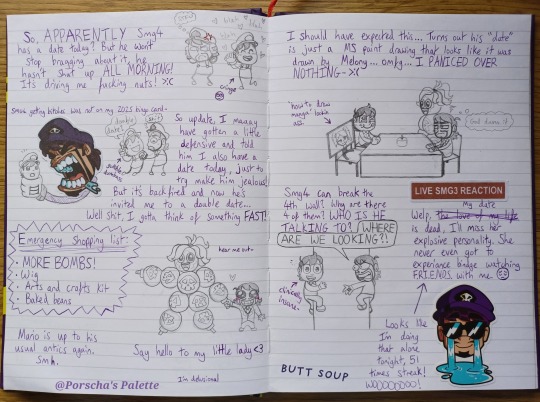 So, APPARENTLY Smg4
has a date today? But he won't
stop bragging about it, he
hasn't shut up ALL MORNING!
It's driving me fucking nuts! >:C
cringe
Smg4 getting bitches was not on my 2025 bingo card-
double date?
So update, I maaay
have gotten a little
defensive and told
him I also have a
date today, just to
try make him jealous!
But it's backfired and now he's
invited me to a double date...
Well shit, I gotta think of something FAST!
Emergency Shopping list:
• MORE BOMBS!
• Wig
• Arts and crafts kit
• Baked beans
hear me out-
Mario is up to his
usual antics again.
Smh.
Say hello to my little lady <3
I'm delusional
@Porscha's Palette
I should have expected this... Turns out his "date"
is just a MS paint drawing that looks like it was
drawn by Melony... omfg... I PANICED OVER
NOTHING- >:(
'how to draw
manga' lookin
ass.
God damn it
LIVE SMG3 REACTION
Smg4 can break the
4th wall? Why are there
4 of them? WHO IS HE
TALKING TO? WHERE
ARE WE LOOKING?!
clinically
insane.
my date
Welp, the love of my life
is dead, I'll miss her
explosive personality. She
never even got to
experience binge watching
FRIENDS with me.
Looks like
I'm doing
that alone
tonight, 51
times streak!
WOOOOOOOO!
BUTT SOUP